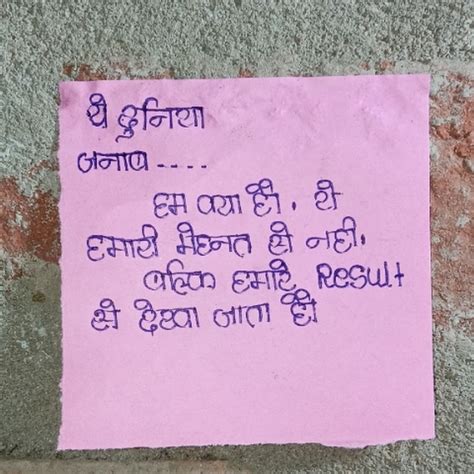 ये दुनिया
जनाब ....
हम क्या हैं, ये
हमारी मेहनत से नहीं,
बल्कि हमारे Result
से देखा जाता हैं